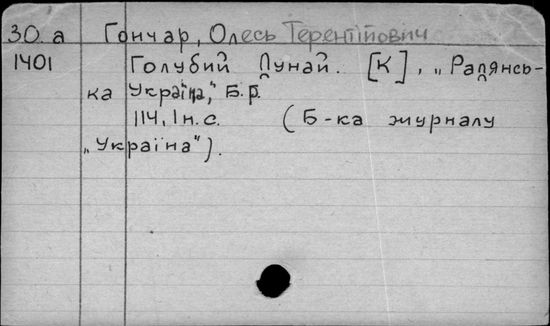 30.а Гончар, Олесь Терентійович
1401 Голубий Дунай. [К], „Радянсь-
ка Україна," Б.р.
114, 1н.с. (Б-ка журналу
„Україна").